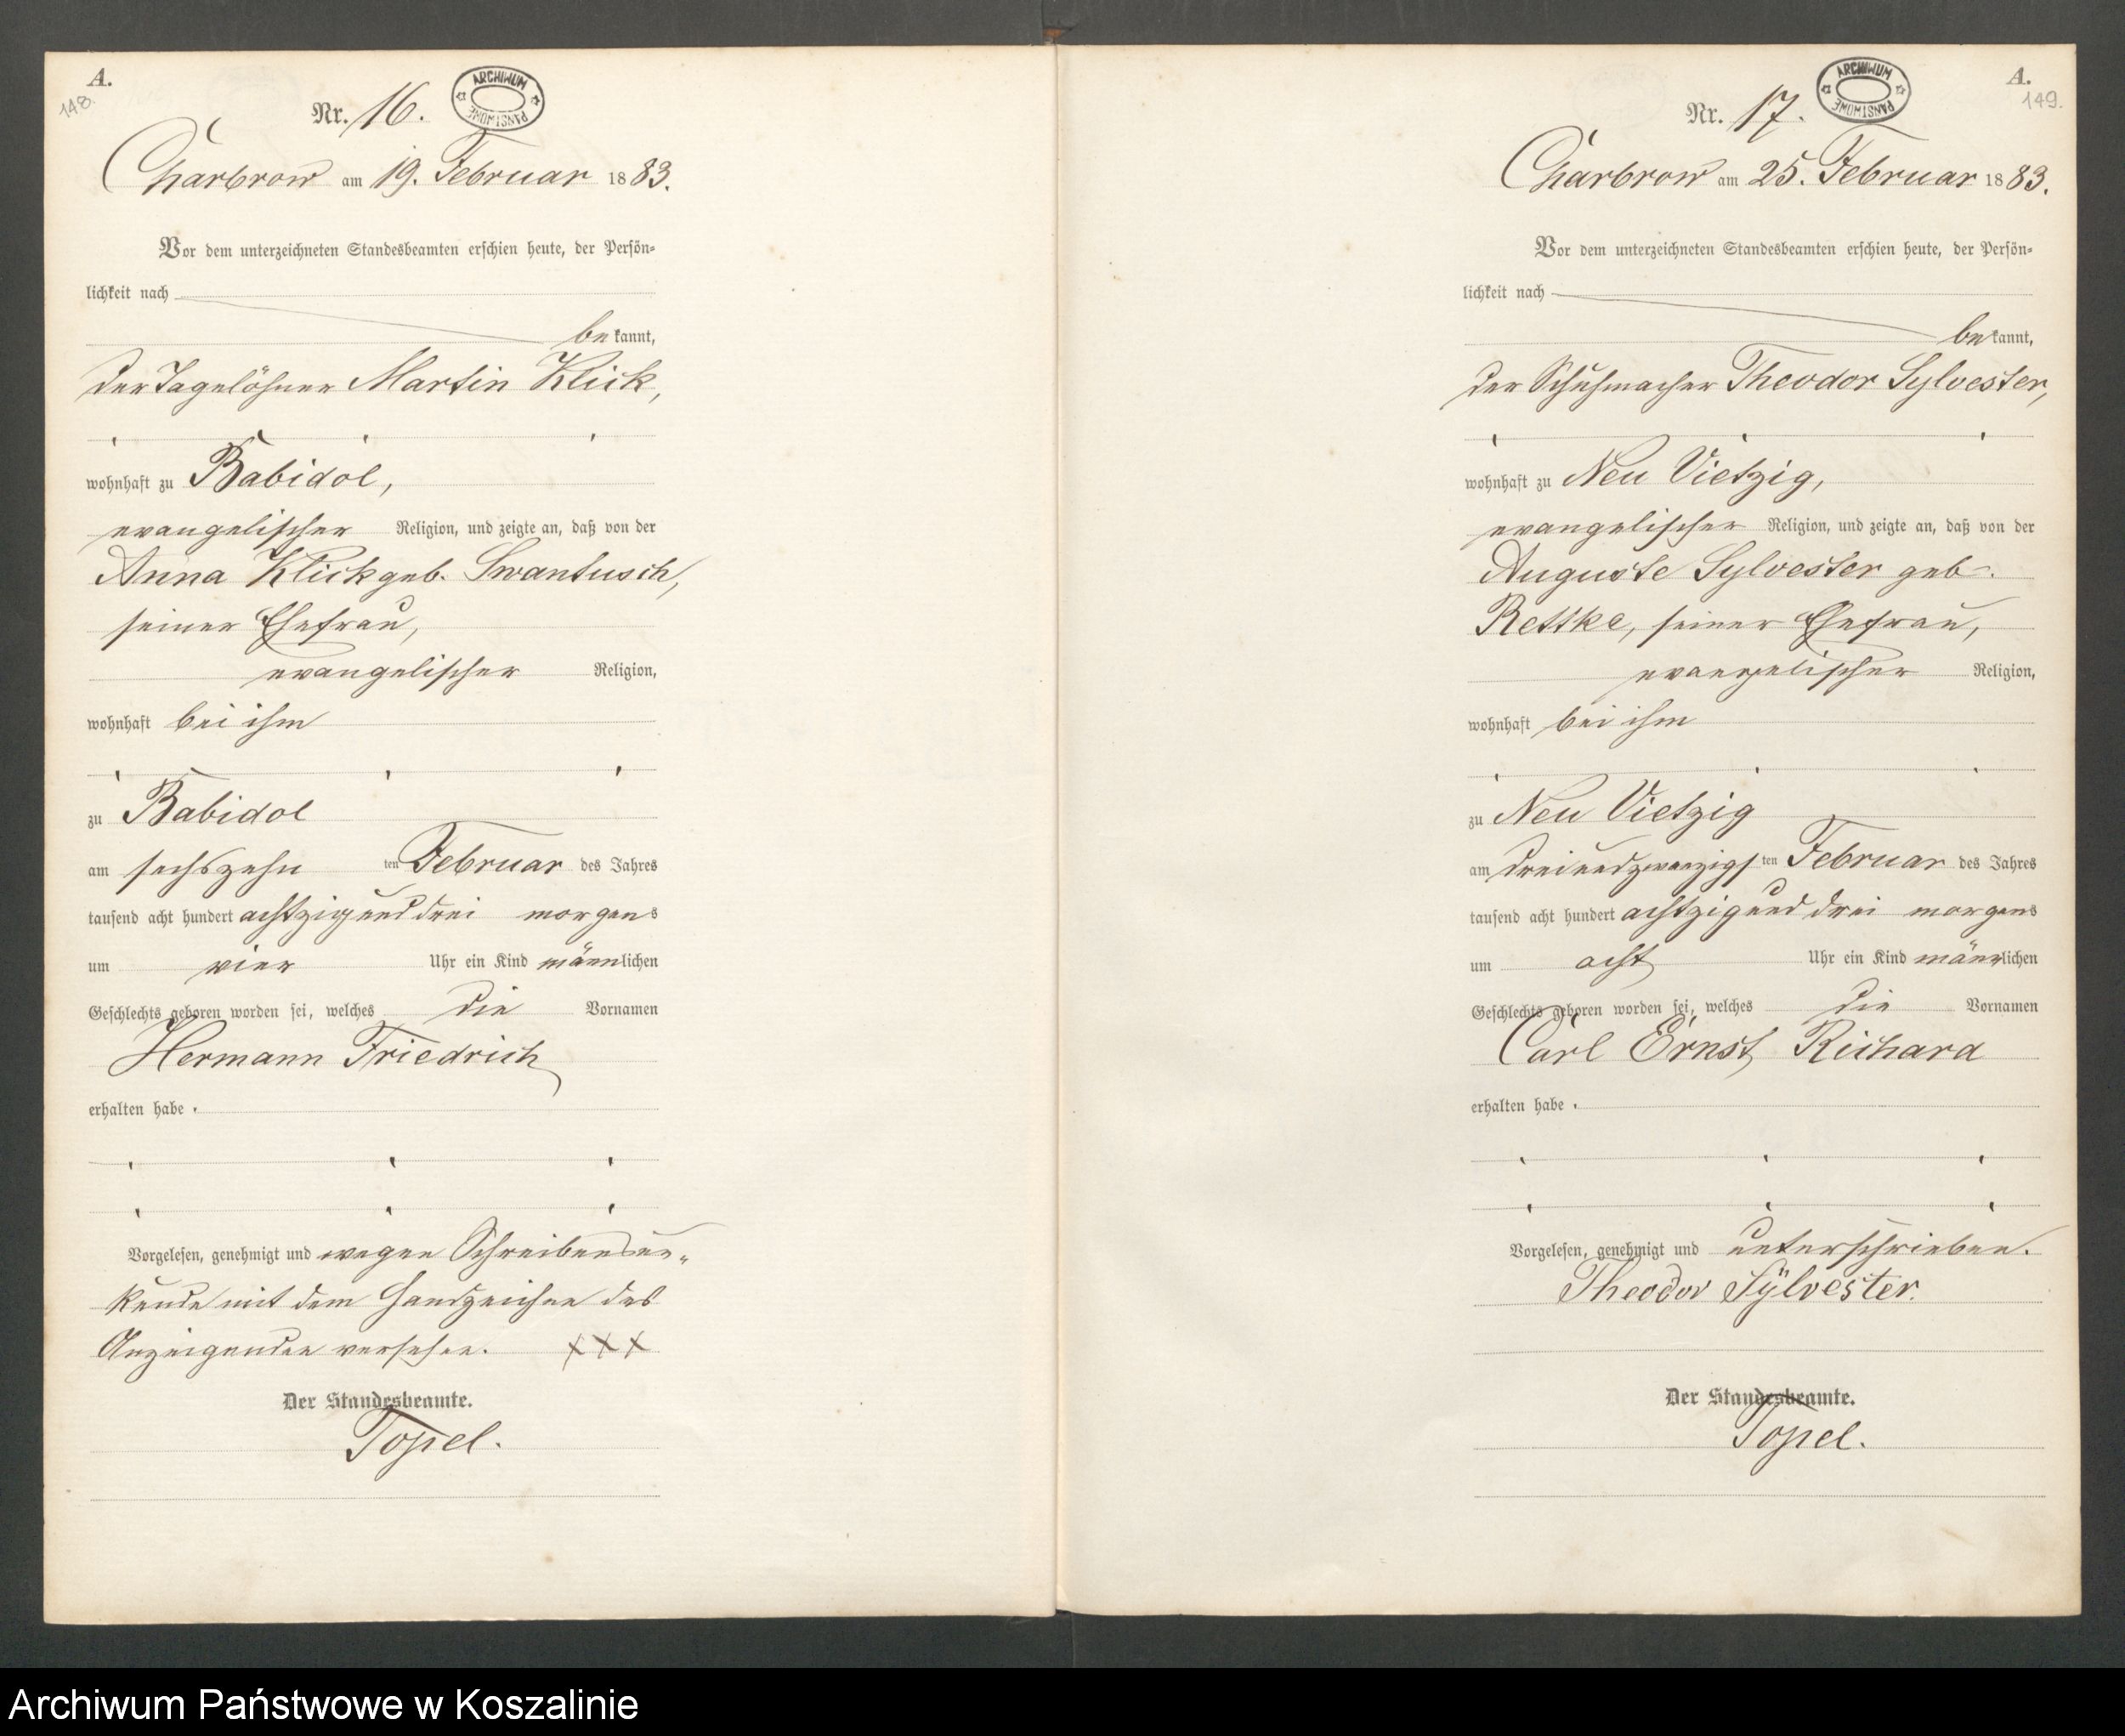 A.
148.
Nr. 16.
ARCHIWUM PAŃSTWOWE
Charbrow am 19. Februar 1883.
Vor dem unterzeichneten Standesbeamten erschien heute, der Persön-
lichkeit nach
bekannt,
der Tagelöhner Martin Klick,
wohnhaft zu Babidol,
evangelischer Religion, und zeigte an, daß von der
Anna Klick geb. Swantusch,
seiner Ehefrau,
evangelischer Religion,
wohnhaft bei ihm
zu Babidol
am sechszehn ten Februar des Jahres
tausend acht hundert achtzig und drei morgens
um vier Uhr ein Kind männlichen
Geschlechts geboren worden sei, welches die Vornamen
Hermann Friedrich
erhalten habe.
Vorgelesen, genehmigt und wegen Schreibensun-
kunde mit dem Handzeichen des
Anzeigenden versehen. XXX
Der Standesbeamte.
Topel.
A.
149.
Nr. 17.
ARCHIWUM PAŃSTWOWE
Charbrow am 25. Februar 1883.
Vor dem unterzeichneten Standesbeamten erschien heute, der Persön-
lichkeit nach
bekannt,
der Schuhmacher Theodor Sylvester,
wohnhaft zu Neu Vietzig,
evangelischer Religion, und zeigte an, daß von der
Auguste Sylvester geb.
Rettke, seiner Ehefrau,
evangelischer Religion,
wohnhaft bei ihm
zu Neu Vietzig
am dreiundzwanzigsten Februar des Jahres
tausend acht hundert achtzig und drei morgens
um acht Uhr ein Kind männlichen
Geschlechts geboren worden sei, welches die Vornamen
Carl Ernst Richard
erhalten habe.
Vorgelesen, genehmigt und unterschrieben.
Theodor Sÿlvester.
Der Standesbeamte.
Topel.
Archiwum Państwowe w Koszalinie